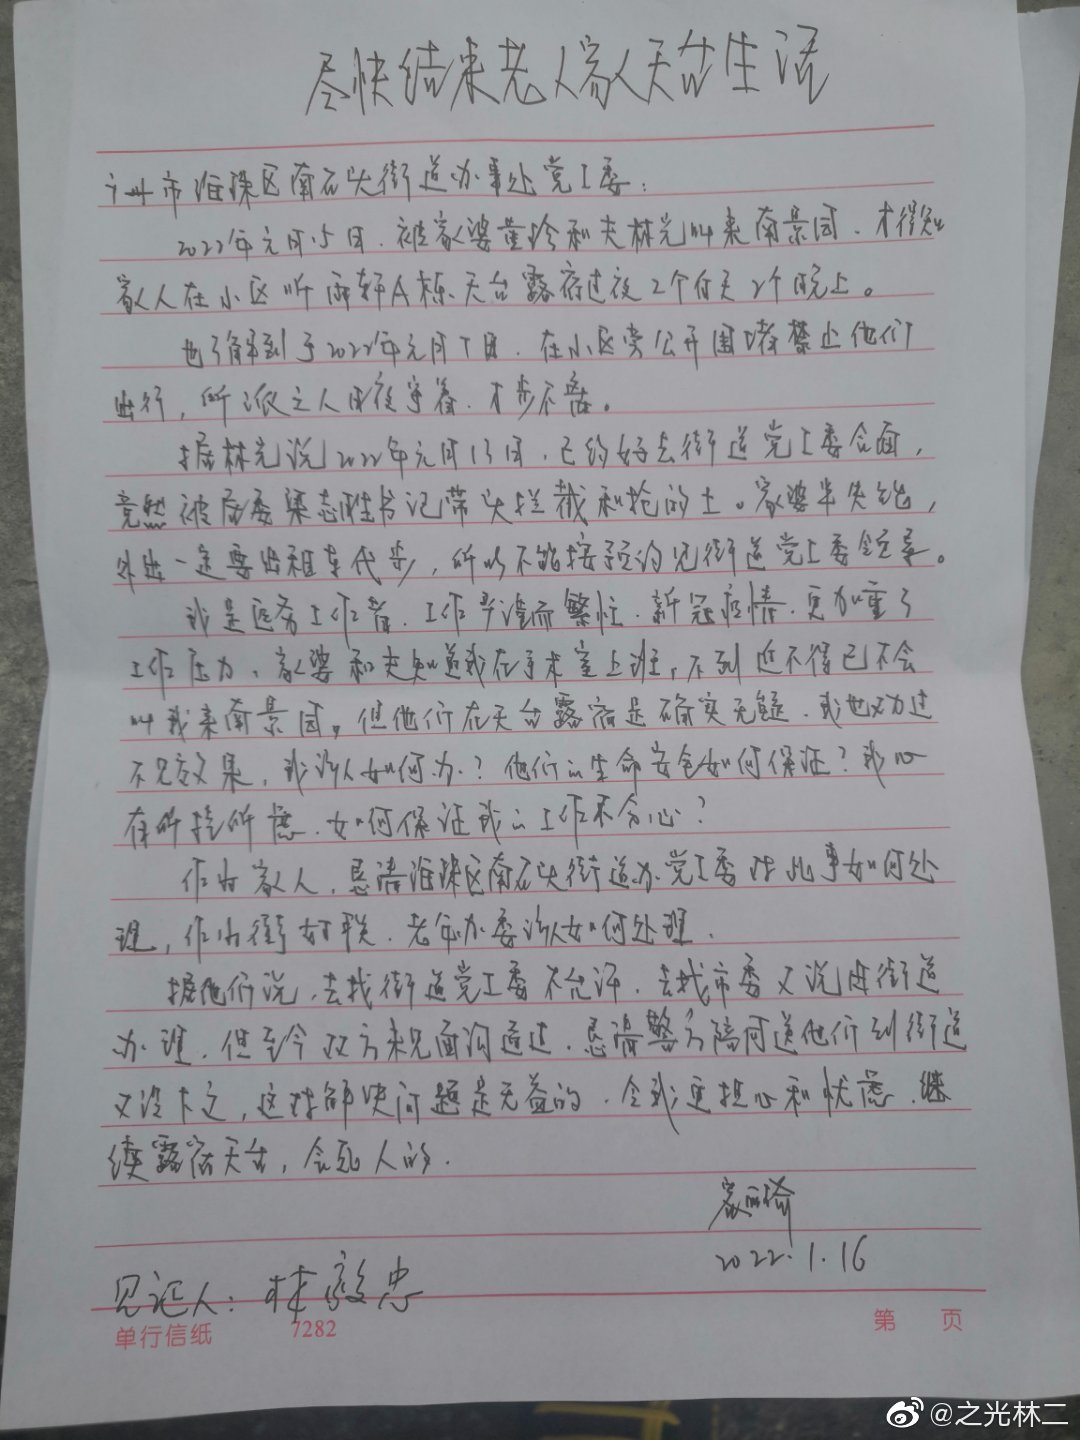 尽快结束老人家人天台生活
广州市海珠区南石头街道办事处党工委：
2022年元月15日，被家婆董珍和夫林光叫来南景园，才得知
家人在小区听雨轩A栋天台露宿过夜2个白天2个晚上。
也了解到于2022年元月7日，在小区旁公开围堵禁止他们
出行，所派之人日夜守着，寸步不离。
据林光说2022年元月13日，已约好去街道党工委会面，
竟然被居委梁志胜书记带头拦截和抢的士。家婆半失能，
外出一定要出租车代步，所以不能按预约见街道党工委领导。
我是医务工作者，工作严谨而繁忙，新冠疫情，更加重了
工作压力，家婆和夫知道我在手术室上班，不到迫不得已不会
叫我来南景园，但他们在天台露宿是确实无疑，我也劝过
不见效果，我该如何办？他们的生命安全如何保证？我心
有所挂所虑，如何保证我的工作不分心？
作为家人，恳请海珠区南石头街道办党工委对此事如何处
理，作为街妇联、老年办委该如何处理，
据他们说，去找街道党工委不允许，去找市委又说由街道
办理，但至今双方未见面沟通过，恳请警方陪同送他们到街道
又没下文，这对解决问题是无益的，令我更担心和忧虑，继
续露宿天台，会死人的。
2022.1.16
见证人：林毅忠
单行信纸 7282 第 页
@之光林二